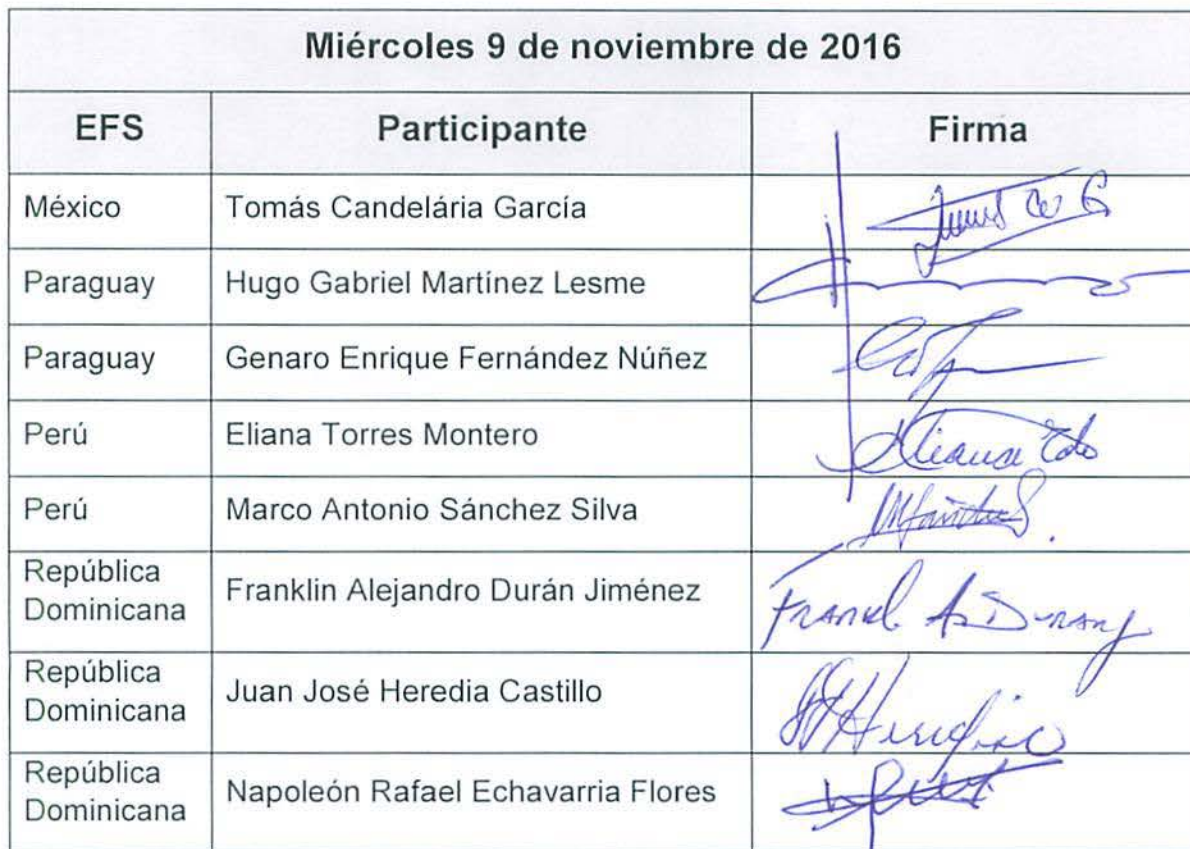 Miércoles 9 de noviembre de 2016
EFS Participante Firma
México Tomás Candelária García
Paraguay Hugo Gabriel Martínez Lesme
Paraguay Genaro Enrique Fernández Núñez
Perú Eliana Torres Montero
Perú Marco Antonio Sánchez Silva
República
Dominicana Franklin Alejandro Durán Jiménez
República
Dominicana Juan José Heredia Castillo
República
Dominicana Napoleón Rafael Echavarria Flores